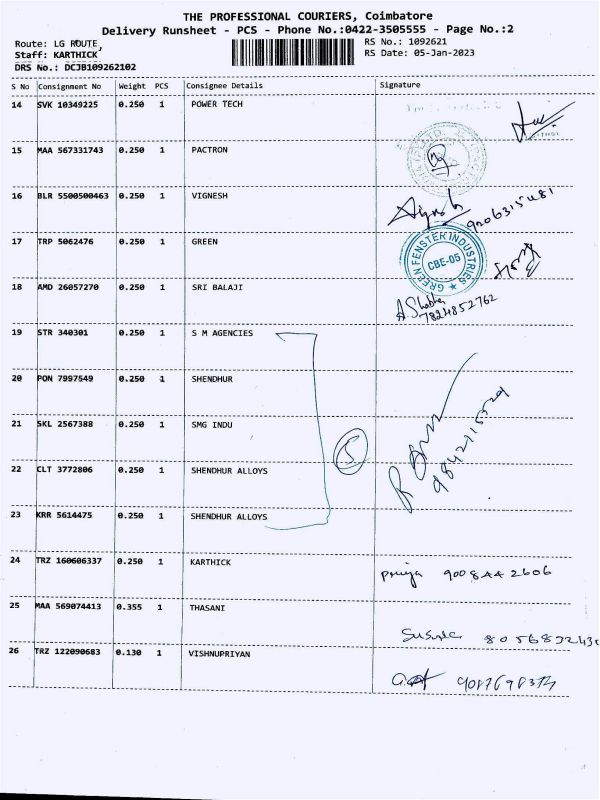 THE PROFESSIONAL COURIERS, Coimbatore
Delivery Runsheet - PCS - Phone No.:0422-3505555 - Page No.:2
Route: LG ROUTE, RS No.: 1092621
Staff: KARTHICK, RS Date: 05-Jan-2023
DRS No.: DCJB109262102
S No Consignment No Weight PCS Consignee Details Signature
14 SVK 10349225 0.250 1 POWER TECH
15 MAA 567331743 0.250 1 PACTRON
16 BLR 5500500463 0.250 1 VIGNESH
Vignesh 9206315481
17 TRP 5062476 0.250 1 GREEN
GREEN FENSTER INDUSTRIES
CBE-05
18 AMD 26057270 0.250 1 SRI BALAJI
7824852762
19 STR 340301 0.250 1 S M AGENCIES
20 PON 7997549 0.250 1 SHENDHUR
21 SKL 2567388 0.250 1 SMG INDU
5
22 CLT 3772806 0.250 1 SHENDHUR ALLOYS
23 KRR 5614475 0.250 1 SHENDHUR ALLOYS
24 TRZ 160606337 0.250 1 KARTHICK
Priya 9008442606
25 MAA 569074413 0.355 1 THASANI
26 TRZ 122090683 0.130 1 VISHNUPRIYAN